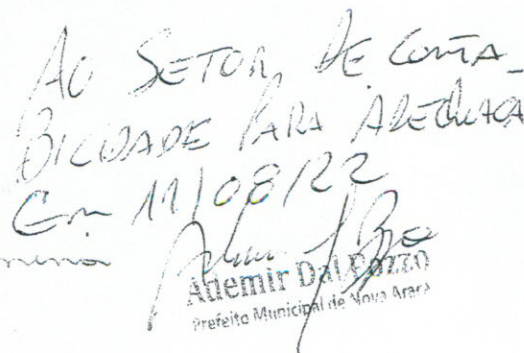 AO SETOR DE CONTA_
BILIDADE PARA ADEQUAÇA
Em 11/08/22
Ademir Dal Pozzo
Prefeito Municipal de Nova Araçá